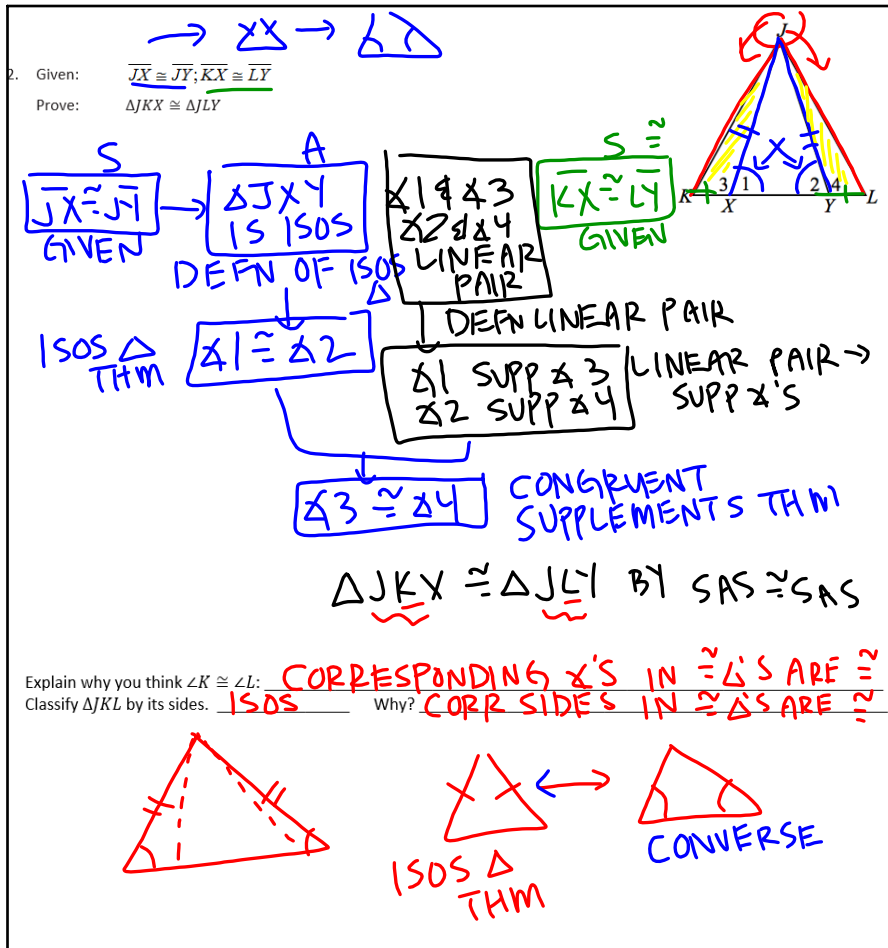 2. Given: JX ≅ JY; KX ≅ LY
Prove: ΔJKX ≅ ΔJLY
J
K 3 1 2 4 L
X Y
S
JX ≅ JY
GIVEN
A
ΔJXY
IS ISOS
DEFN OF ISOS
Δ
∡1 & ∡3
∡2 & ∡4
LINEAR
PAIR
S ≅
KX ≅ LY
GIVEN
DEFN LINEAR PAIR
ISOS Δ
THM
∡1 ≅ ∡2
∡1 SUPP ∡3
∡2 SUPP ∡4
LINEAR PAIR →
SUPP ∡'S
∡3 ≅ ∡4
CONGRUENT
SUPPLEMENTS THM
ΔJKX ≅ ΔJLY BY SAS ≅ SAS
Explain why you think ∠K ≅ ∠L: CORRESPONDING ∡'S IN ≅ Δ'S ARE ≅
Classify ΔJKL by its sides. ISOS Why? CORR SIDES IN ≅ Δ'S ARE ≅
ISOS Δ
THM
CONVERSE